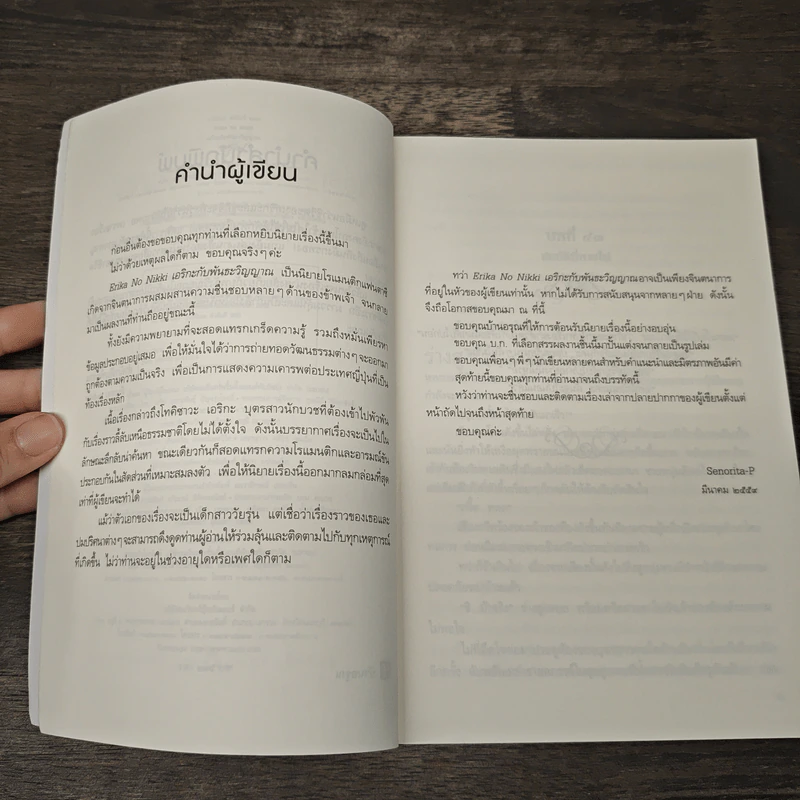 คำนำผู้เขียน
ก่อนอื่นต้องขอขอบคุณทุกท่านที่เลือกหยิบนิยายเรื่องนี้ขึ้นมา
ไม่ว่าด้วยเหตุผลใดก็ตาม ขอบคุณจริงๆ ค่ะ
Erika No Nikki เอริกะกับพันธะวิญญาณ เป็นนิยายโรแมนติกแฟนตาซี
เกิดจากจินตนาการผสมผสานความชื่นชอบหลายๆ ด้านของข้าพเจ้า จนกลาย
มาเป็นผลงานที่ท่านถืออยู่ขณะนี้
ทั้งยังมีความพยายามที่จะสอดแทรกเกร็ดความรู้ รวมถึงหมั่นเพียรหา
ข้อมูลประกอบอยู่เสมอ เพื่อให้มั่นใจได้ว่าการถ่ายทอดวัฒนธรรมต่างๆ จะออกมา
ถูกต้องตามความเป็นจริง เพื่อเป็นการแสดงความเคารพต่อประเทศญี่ปุ่นที่เป็น
ท้องเรื่องหลัก
เนื้อเรื่องกล่าวถึงโทคิซาวะ เอริกะ บุตรสาวนักบวชที่ต้องเข้าไปพัวพัน
กับเรื่องราวลี้ลับเหนือธรรมชาติโดยไม่ได้ตั้งใจ ดังนั้นบรรยากาศเรื่องจะเป็นไปใน
ลักษณะลึกลับน่าค้นหา ขณะเดียวกันก็สอดแทรกความโรแมนติกและอารมณ์ขัน
ประกอบกันในสัดส่วนที่เหมาะสมลงตัว เพื่อให้นิยายเรื่องนี้ออกมากลมกล่อมที่สุด
เท่าที่ผู้เขียนจะทำได้
แม้ว่าตัวเอกของเรื่องจะเป็นเด็กสาววัยรุ่น แต่เชื่อว่าเรื่องราวของเธอและ
ปมปริศนาต่างๆ จะสามารถดึงดูดท่านผู้อ่านให้ร่วมลุ้นและติดตามไปกับทุกเหตุการณ์
ที่เกิดขึ้น ไม่ว่าท่านจะอยู่ในช่วงอายุใดหรือเพศใดก็ตาม
ทว่า Erika No Nikki เอริกะกับพันธะวิญญาณอาจเป็นเพียงจินตนาการ
ที่อยู่ในหัวของผู้เขียนเท่านั้น หากไม่ได้รับการสนับสนุนจากหลายๆ ฝ่าย ดังนั้น
จึงถือโอกาสขอบคุณมา ณ ที่นี้
ขอบคุณบ้านอรุณที่ให้การต้อนรับนิยายเรื่องนี้อย่างอบอุ่น
ขอบคุณ บ.ก. ที่เลือกสรรผลงานชิ้นนี้มาปั้นแต่งจนกลายเป็นรูปเล่ม
ขอบคุณเพื่อนๆ พี่ๆ นักเขียนหลายคนสำหรับคำแนะนำและมิตรภาพอันมีค่า
สุดท้ายนี้ขอบคุณทุกท่านที่อ่านมาจนถึงบรรทัดนี้
หวังว่าท่านจะชื่นชอบและติดตามเรื่องเล่าจากปลายปากกาของผู้เขียนตั้งแต่
หน้าถัดไปจนถึงหน้าสุดท้าย
ขอบคุณค่ะ
Senorita-P
มีนาคม ๒๕๕๙